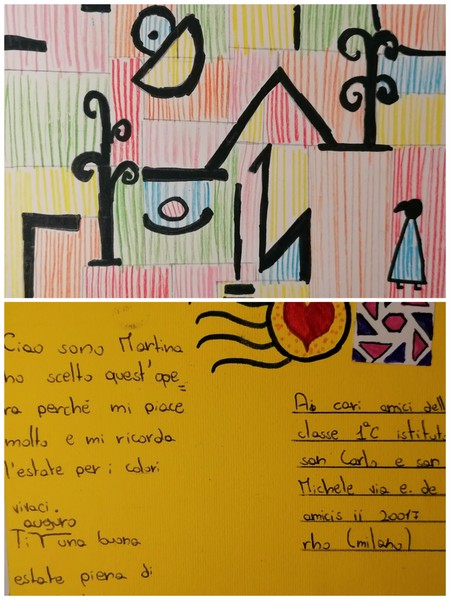 Ciao sono Martina
ho scelto quest'ope=
ra perché mi piace
molto e mi ricorda
l'estate per i colori
vivaci.
Ti auguro una buona
estate piena di
Ai cari amici dell
classe 1ªC istitut
san Carlo e san
Michele via e. de
amicis ii 20017
rho (milano)